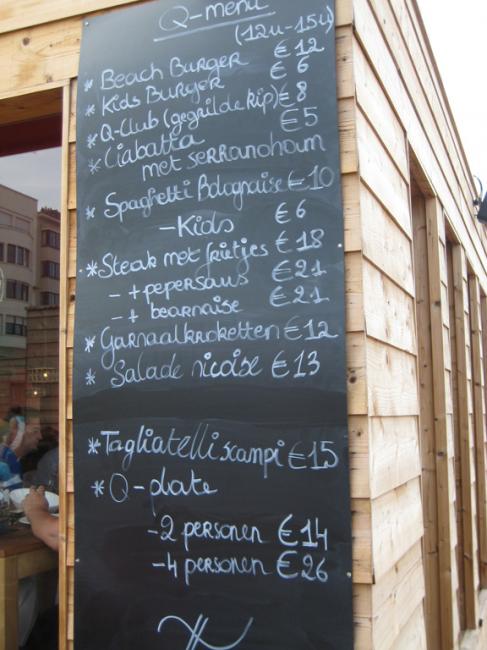 Q-menu
(12u-15u)
* Beach Burger €12
* Kids Burger €6
* Q-Club (gegrilde kip) €8
* Ciabatta €5
met serranoham
* Spaghetti Bolognaise €10
-Kids €6
* Steak met frietjes €18
- + pepersaus €21
- + bearnaise €21
* Garnaalkroketten €12
* Salade nicoise €13
* Tagliatelli scampi €15
* Q-plate
-2 personen €14
-4 personen €26